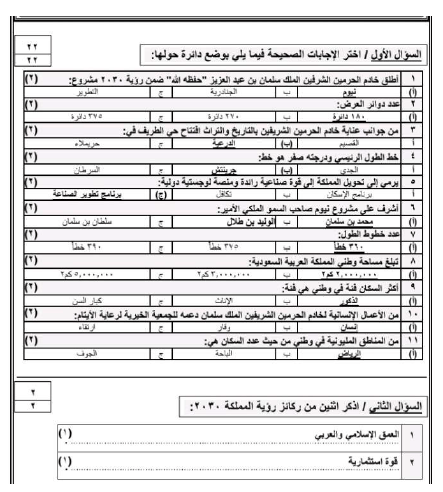 ٢٢
٢٢
السؤال الأول / اختر الإجابات الصحيحة فيما يلي بوضع دائرة حولها:
١ أطلق خادم الحرمين الشرفين الملك سلمان بن عبد العزيز "حفظه الله" ضمن رؤية ٢٠٣٠ مشروع: (٢)
(أ) نيوم ب الجنادرية ج التطوير
٢ عدد دوائر العرض: (٢)
(أ) ١٨٠ دائرة ب ٢٧٠ دائرة ج ٣٧٥ دائرة
٣ من جوانب عناية خادم الحرمين الشريفين بالتاريخ والتراث افتتاح حي الطريف في: (٢)
أ القصيم (ب) الدرعية ج حريملاء
٤ خط الطول الرئيسي ودرجته صفر هو خط: (٢)
أ الجدي (ب) جرينتش ج السرطان
٥ يرمي إلى تحويل المملكة إلى قوة صناعية رائدة ومنصة لوجستية دولية: (٢)
أ برنامج الإسكان ب تكافل (ج) برنامج تطوير الصناعة
٦ أشرف على مشروع نيوم صاحب السمو الملكي الأمير: (٢)
(أ) محمد بن سلمان ب الوليد بن طلال ج سلطان بن سلمان
٧ عدد خطوط الطول: (٢)
(أ) ٣٦٠ خطاً ب ٣٧٥ خطاً ج ٣٩٠ خطاً
٨ تبلغ مساحة وطني المملكة العربية السعودية: (٢)
(أ) ٢,٠٠٠,٠٠٠ كم٢ ب ٣,٠٠٠,٠٠٠ كم٢ ج ٥,٠٠٠,٠٠٠ كم٢
٩ أكثر السكان فئة في وطني هي فئة: (٢)
(أ) الذكور ب الإناث ج كبار السن
١٠ من الأعمال الإنسانية لخادم الحرمين الشريفين الملك سلمان دعمه للجمعية الخيرية لرعاية الأيتام: (٢)
(أ) إنسان ب وقار ج ارتقاء
١١ من المناطق المليونية في وطني من حيث عدد السكان هي: (٢)
(أ) الرياض ب الباحة ج الجوف
٢
٢
السؤال الثاني / اذكر اثنين من ركائز رؤية المملكة ٢٠٣٠:
١ العمق الإسلامي والعربي (١)
٢ قوة استثمارية (١)